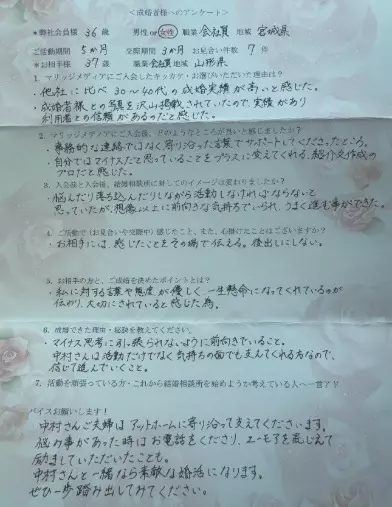 <成婚者様へのアンケート>
*弊社会員様 36歳 男性 or 女性 職業 会社員 地域 宮城県
ご活動期間 5か月 交際期間 3か月 お見合い件数 7件
*お相手様 37歳 職業 会社員 地域 山形県
1. マリッジメディアにご入会したキッカケ・お選びいただいた理由は?
・他社に比べ30~40代の成婚実績が高いと感じた。
・成婚者様との写真を沢山掲載されていたので、実績があり
利用者との信頼があるのだと感じた。
2. マリッジメディアにご入会後、どのようなところが良いと感じましたか?
・事務的な連絡ではなく寄り添った言葉でサポートしてくださったところ。
・自分ではマイナスだと思っていることをプラスに変えてくれる、紹介文作成の
プロだと感じた。
3. 入会前と入会後、結婚相談所に対してのイメージは変わりましたか?
・悩んだり落ち込んだりしながら活動しなければならないと
思っていたが、想像以上に前向きな気持ちでいられ、うまく進む事ができた。
4. ご活動で(お見合いや交際中)感じたこと、また、心掛けたことはございますか?
・お相手には、感じたことをその場で伝える。後出しにしない。
5. お相手の方と、ご成婚を決めたポイントとは?
・私に対する言葉や態度が優しく、一生懸命になってくれているのが
伝わり、大切にされていると感じた為。
6. 成婚できた理由・秘訣を教えてください。
・マイナス思考に引っ張られないように前向きでいること。
中村さんは活動だけでなく気持ちの面でも支えてくれる方なので、
信じて進んでいくこと。
7. 活動を頑張っている方・これから結婚相談所を始めようか考えている人へ一言アド
バイスお願いします!
中村さんご夫婦はアットホームに寄り添って支えてくださいます。
悩み事があった時はお電話をくださり、ユーモアを混じえて
励ましていただいたことも。
中村さんと一緒なら素敵な婚活になります。
ぜひ一歩踏み出してみてください。